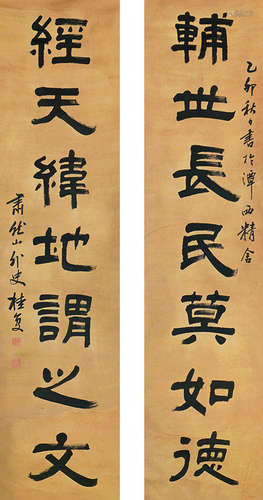 輔世長民莫如德
乙卯秋日書於潭西精舍
經天緯地謂之文
肅然山外史桂复